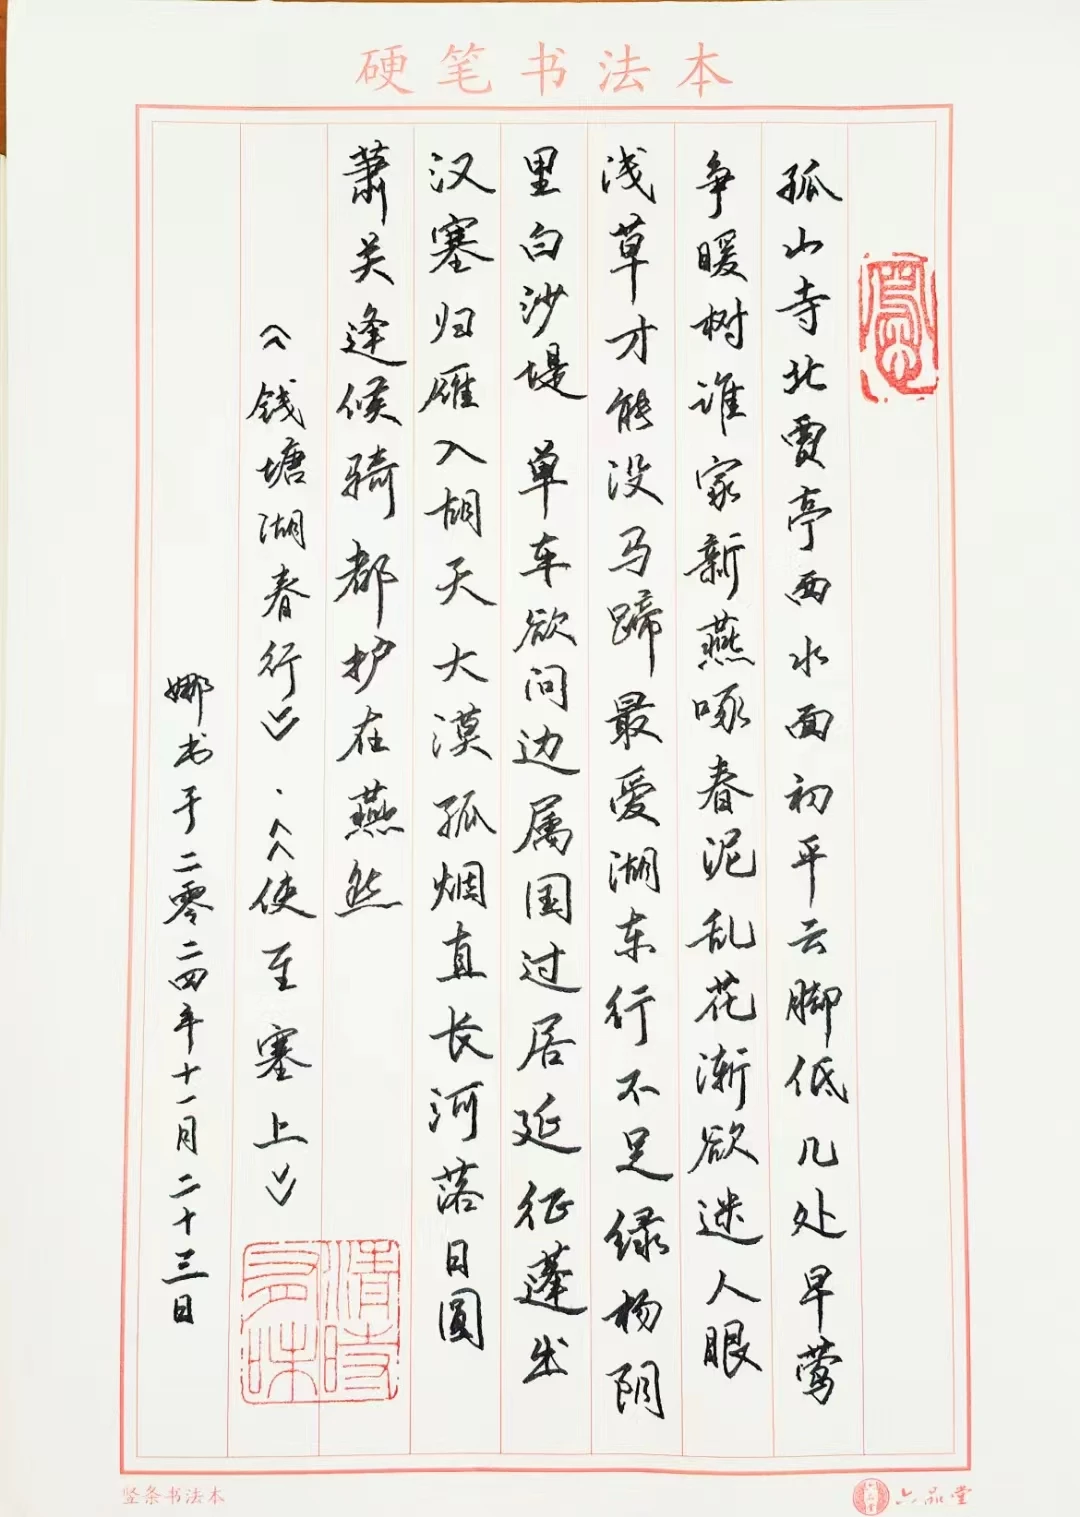 硬笔书法本
孤山寺北贾亭西水面初平云脚低几处早莺
争暖树谁家新燕啄春泥乱花渐欲迷人眼
浅草才能没马蹄最爱湖东行不足绿杨阴
里白沙堤 单车欲问边属国过居延征蓬出
汉塞归雁入胡天大漠孤烟直长河落日圆
萧关逢候骑都护在燕然
《钱塘湖春行》·《使至塞上》
娜书于二零二四年十一月二十三日
清时有味
竖条书法本
六品堂